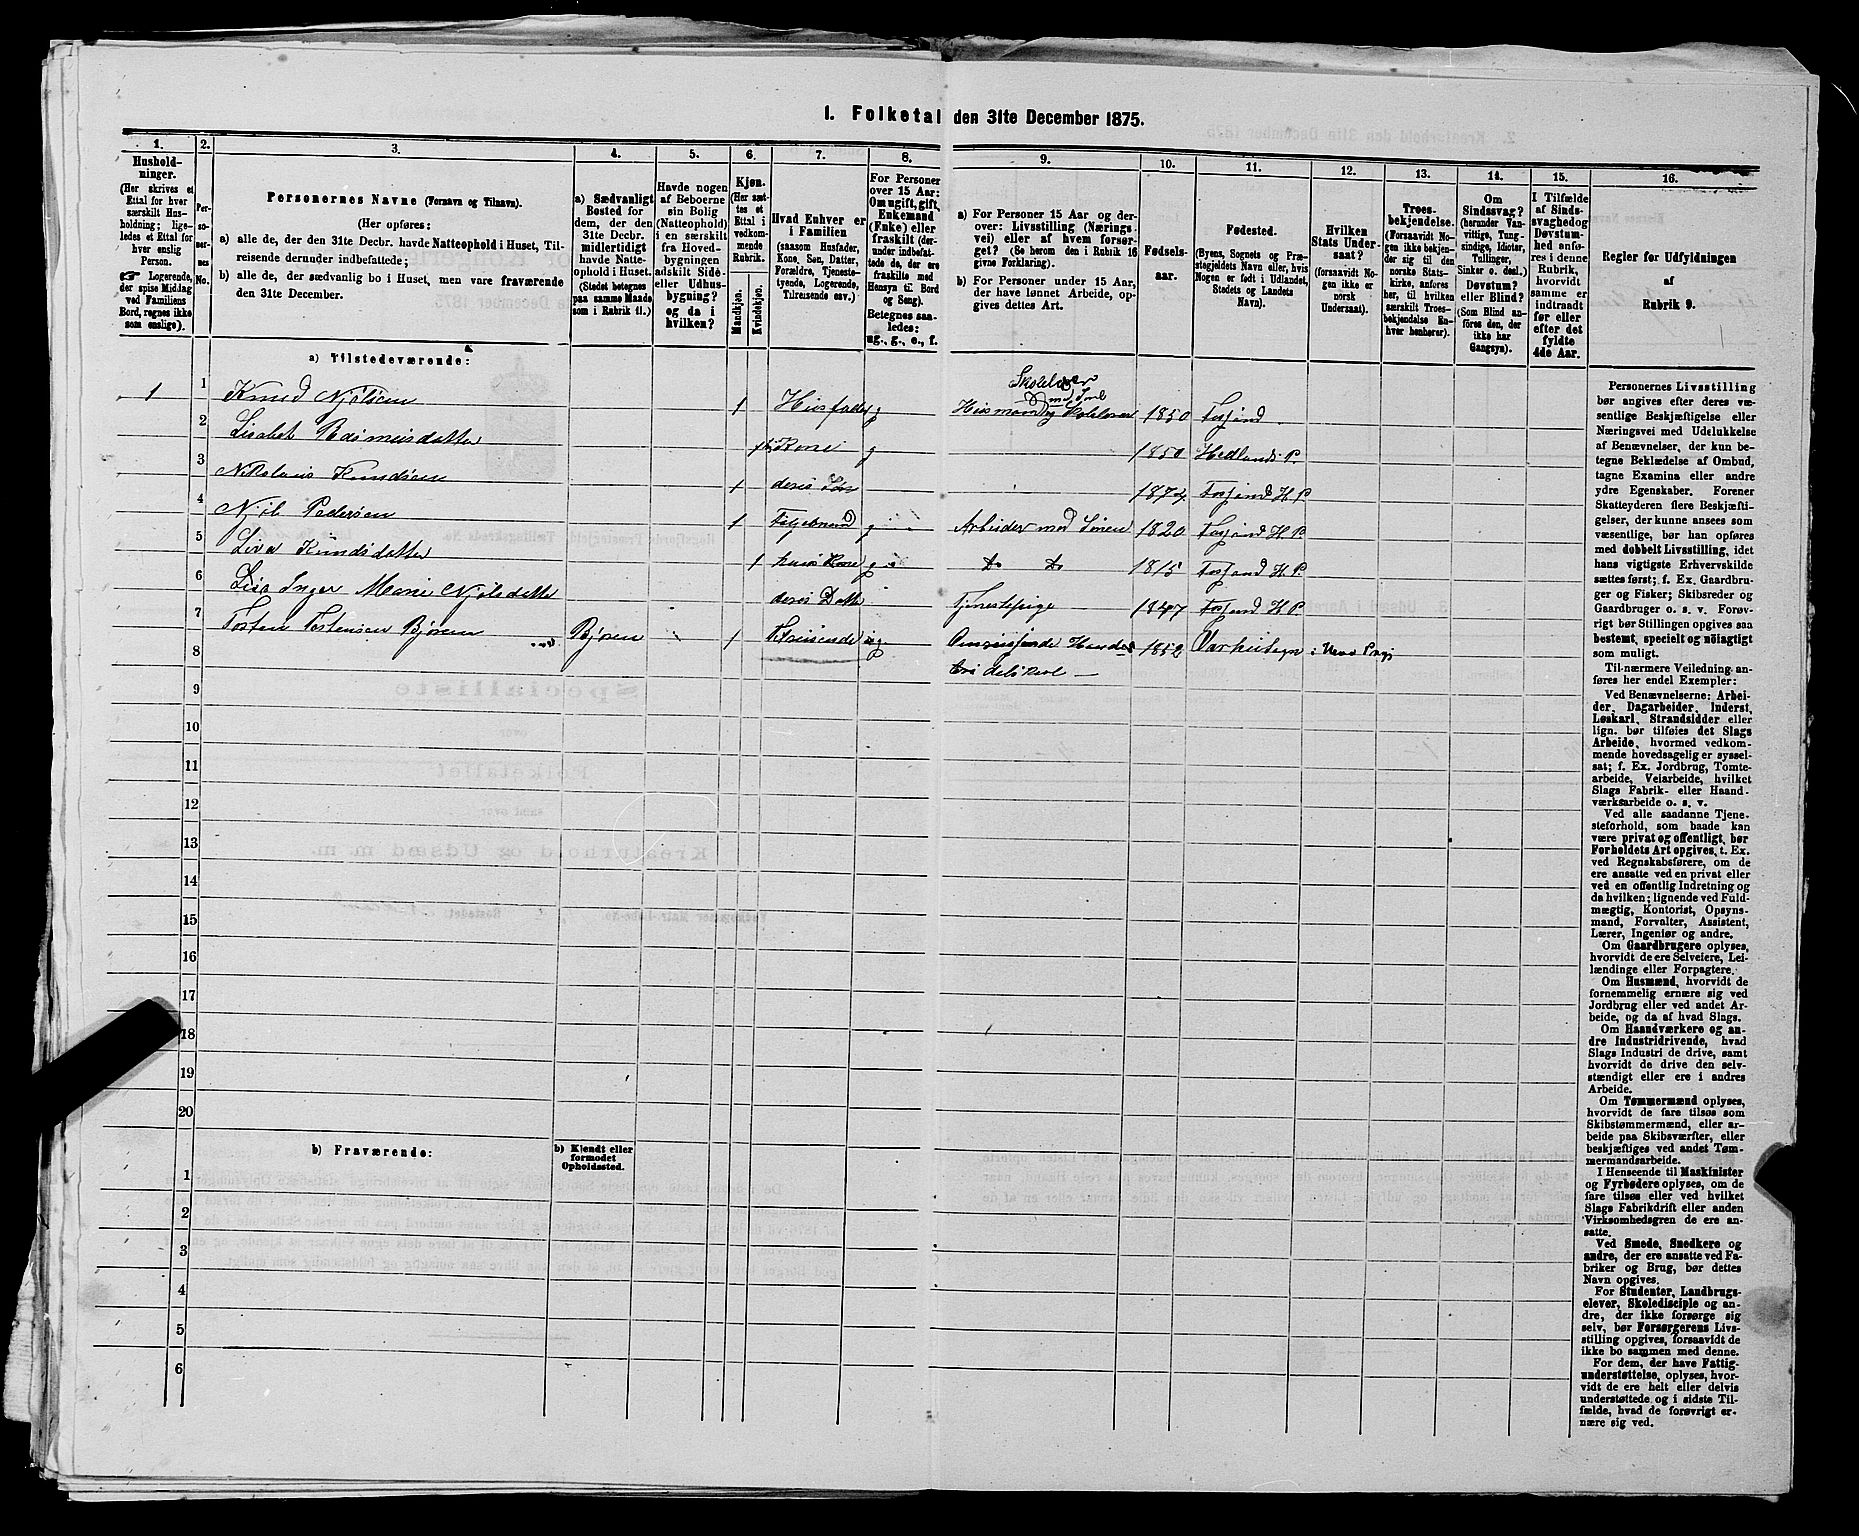 1. Folketal den 31te December 1875.
1.
Hushold-
ninger.
(Her skrives et
Ettal for hver
særskilt Hus-
holdning; lige-
ledes et Ettal for
hver enslig
Person.
☞ Logerende,
der spise Middag
ved Familiens
Bord, regnes ikke
som enslige).
2.
Per-
so-
ner-
nes
No.
3.
Personernes Navne (Fornavn og Tilnavn).
(Her opføres:
a) alle de, der den 31te Decbr. havde Natteophold i Huset, Til-
reisende derunder indbefattede;
b) alle de, der sædvanlig bo i Huset, men vare fraværende
den 31te December.
4.
a) Sædvanligt
Bosted for
dem, der den
31te Decbr.
midlertidigt
havde Natte-
ophold i Huset.
(Stedet betegnes
paa samme Maade,
som i Rubrik 11.)
5.
Havde nogen
af Beboerne
sin Bolig
(Natteophold)
i en særskilt
fra Hoved-
bygningen
adskilt Side-
eller Udhus-
bygning?
og da i
hvilken?
6.
Kjøn.
(Her sæt-
tes et
Ettal i
vedkom-
mende
Rubrik.
Mandkjøn.
Kvindekjøn.
7.
Hvad Enhver er
i Familien
(saasom Husfader,
Kone, Søn, Datter,
Forældre, Tjeneste-
tyende, Logerende,
Tilreisende osv.)
8.
For Personer
over 15 Aar:
Om ugift, gift,
Enkemand
(Enke) eller
fraskilt (der-
under indbefat-
tede de, der ere
fraskilte med
Hensyn til Bord
og Seng).
Betegnes saa-
ledes:
ug., g., e., f.
9.
a) For Personer 15 Aar og der-
over: Livsstilling (Nærings-
vei) eller af hvem forsør-
get? (Se herom den i Rubrik 16
givne Forklaring).
b) For Personer under 15 Aar,
der have lønnet Arbeide, op-
gives dettes Art.
10.
Fødsels-
aar.
11.
Fødested.
(Byens, Sognets og Præ-
stegjeldets Navn eller, hvis
Nogen er født i Udlandet,
Stedets og Landets
Navn).
12.
Hvilken
Stats Under-
saat?
(forsaavidt No-
gen ikke er
norsk
Undersaat).
13.
Troes-
bekjendelse.
(Forsaavidt No-
gen ikke bekjen-
der sig til den
norske Stats-
kirke, anføres
her, til hvilken
særskilt Troes-
bekjendelse En-
hver henhører).
14.
Om
Sindssvag?
(herunder Van-
vittige, Tung-
sindige, Idioter,
Tullinger,
Sinker o. desl.)
Døvstum?
eller Blind?
(Som Blind an-
føres den, der
ikke har
Gangsyn).
15.
I Tilfælde
af Sinds-
svaghed og
Døvstum-
hed anfø-
res i denne
Rubrik,
hvorvidt
samme er
indtraadt
før eller
efter det
fyldte
4de Aar.
16.
Regler for Udfyldningen
af
Rubrik 9.
a) Tilstedeværende:
1 1 Knud Njølsen 1 Husfader g Husmand og Skolelærer 1850
Skolelærer
2 Lisabet Rasmusdatter Kone g 1850 Hedlands P.
3 Nikolaus Knudsen 1 deres Søn 1874
4 Njöl Pedersen 1 g Arbeider med Sönen 1820
5 Siva Knudsdatter 1 hans Kone g 1815
6 Inger Marie Njölsdatter deres Dattr Tjenestepige 1847
7 Torsten Torstensen Bjøren Bjøren 1 Omreisende 1852
8
9
10
11
12
13
14
15
16
17
18
19
20
b) Fraværende:
b) Kjendt eller
formodet
Opholdssted.
1
2
3
4
5
6
Personernes Livsstilling
bør angives efter deres væ-
sentlige Beskjæftigelse eller
Næringsvei med Udelukkelse
af Benævnelser, der kun be-
tegne Beklædelse af Ombud,
tagne Examina eller andre
ydre Egenskaber. Forener
Skatteyderen flere Beskjæfti-
gelser, der kunne ansees som
væsentlige, bør han opføres
med dobbelt Livsstilling, idet
hans vigtigste Erhvervskilde
sættes først; f. Ex. Gaardbru-
ger og Fisker; Skibsreder og
Gaardbruger o. s. v. Forøv-
rigt bør Stillingen opgives saa
bestemt, specielt og nöiagtigt
som muligt.
Til nærmere Veiledning an-
føres her endel Exempler:
Ved Benævnelserne: Arbei-
der, Dagarbeider, Inderst,
Løskarl, Strandsidder eller
lign. bør tilføies det Slags
Arbeide, hvormed vedkom-
mende hovedsagelig er syssel-
sat; f. Ex. Jordbrug, Tomte-
arbeide, Veiarbeide, hvilket
Slags Fabrik- eller Haand-
værksarbeide o. s. v.
Ved alle saadanne Tjene-
steforhold, som baade kan
være privat og offentligt, bør
Forholdets Art opgives, t. Ex.
ved Regnskabsførere, om de
ere ansatte ved en privat eller
ved en offentlig Indretning og
da hvilken; lignende ved Fuld-
mægtig, Kontorist, Opsyns-
mand, Forvalter, Assistent,
Lærer, Ingeniør og andre.
Om Gaardbrugere oplyses,
hvorvidt de ere Selveiere, Lei-
lændinge eller Forpagtere.
Om Husmænd, hvorvidt de
fornemmelig ernære sig ved
Jordbrug eller ved andet Ar-
beide, og da af hvad Slags.
Om Haandværkere og an-
dre Industridrivende, hvad
Slags Industri de drive, samt
hvorvidt de drive den selv-
stændigt eller ere i andres
Arbeide.
Om Tømmermænd oplyses,
hvorvidt de fare tilsøs som
Skibstømmermænd, eller ar-
beide paa Skibsværfter, eller
beskjæftiges ved andet Tøm-
mermandsarbeide.
I Henseende til Maskinister
og Fyrbødere oplyses, om de
fare tilsøs eller ved hvilket
Slags Fabrikdrift eller anden
Virksomhedsgren de ere an-
satte.
Ved Smede, Snedkere og
andre, der ere ansatte ved Fa-
briker og Brug, bør dettes
Navn opgives.
For Studenter, Landbrugs-
elever, Skoledisciple og an-
dre, der ikke forsørge sig
selv, bør Forsørgerens Livs-
stilling opgives, forsaavidt de
ikke bo sammen med denne.
For dem, der have Fattig-
understøttelse, oplyses, hvor-
vidt de ere helt eller delvis
understøttede og i sidste Til-
fælde, hvad de forøvrigt er-
nære sig ved.